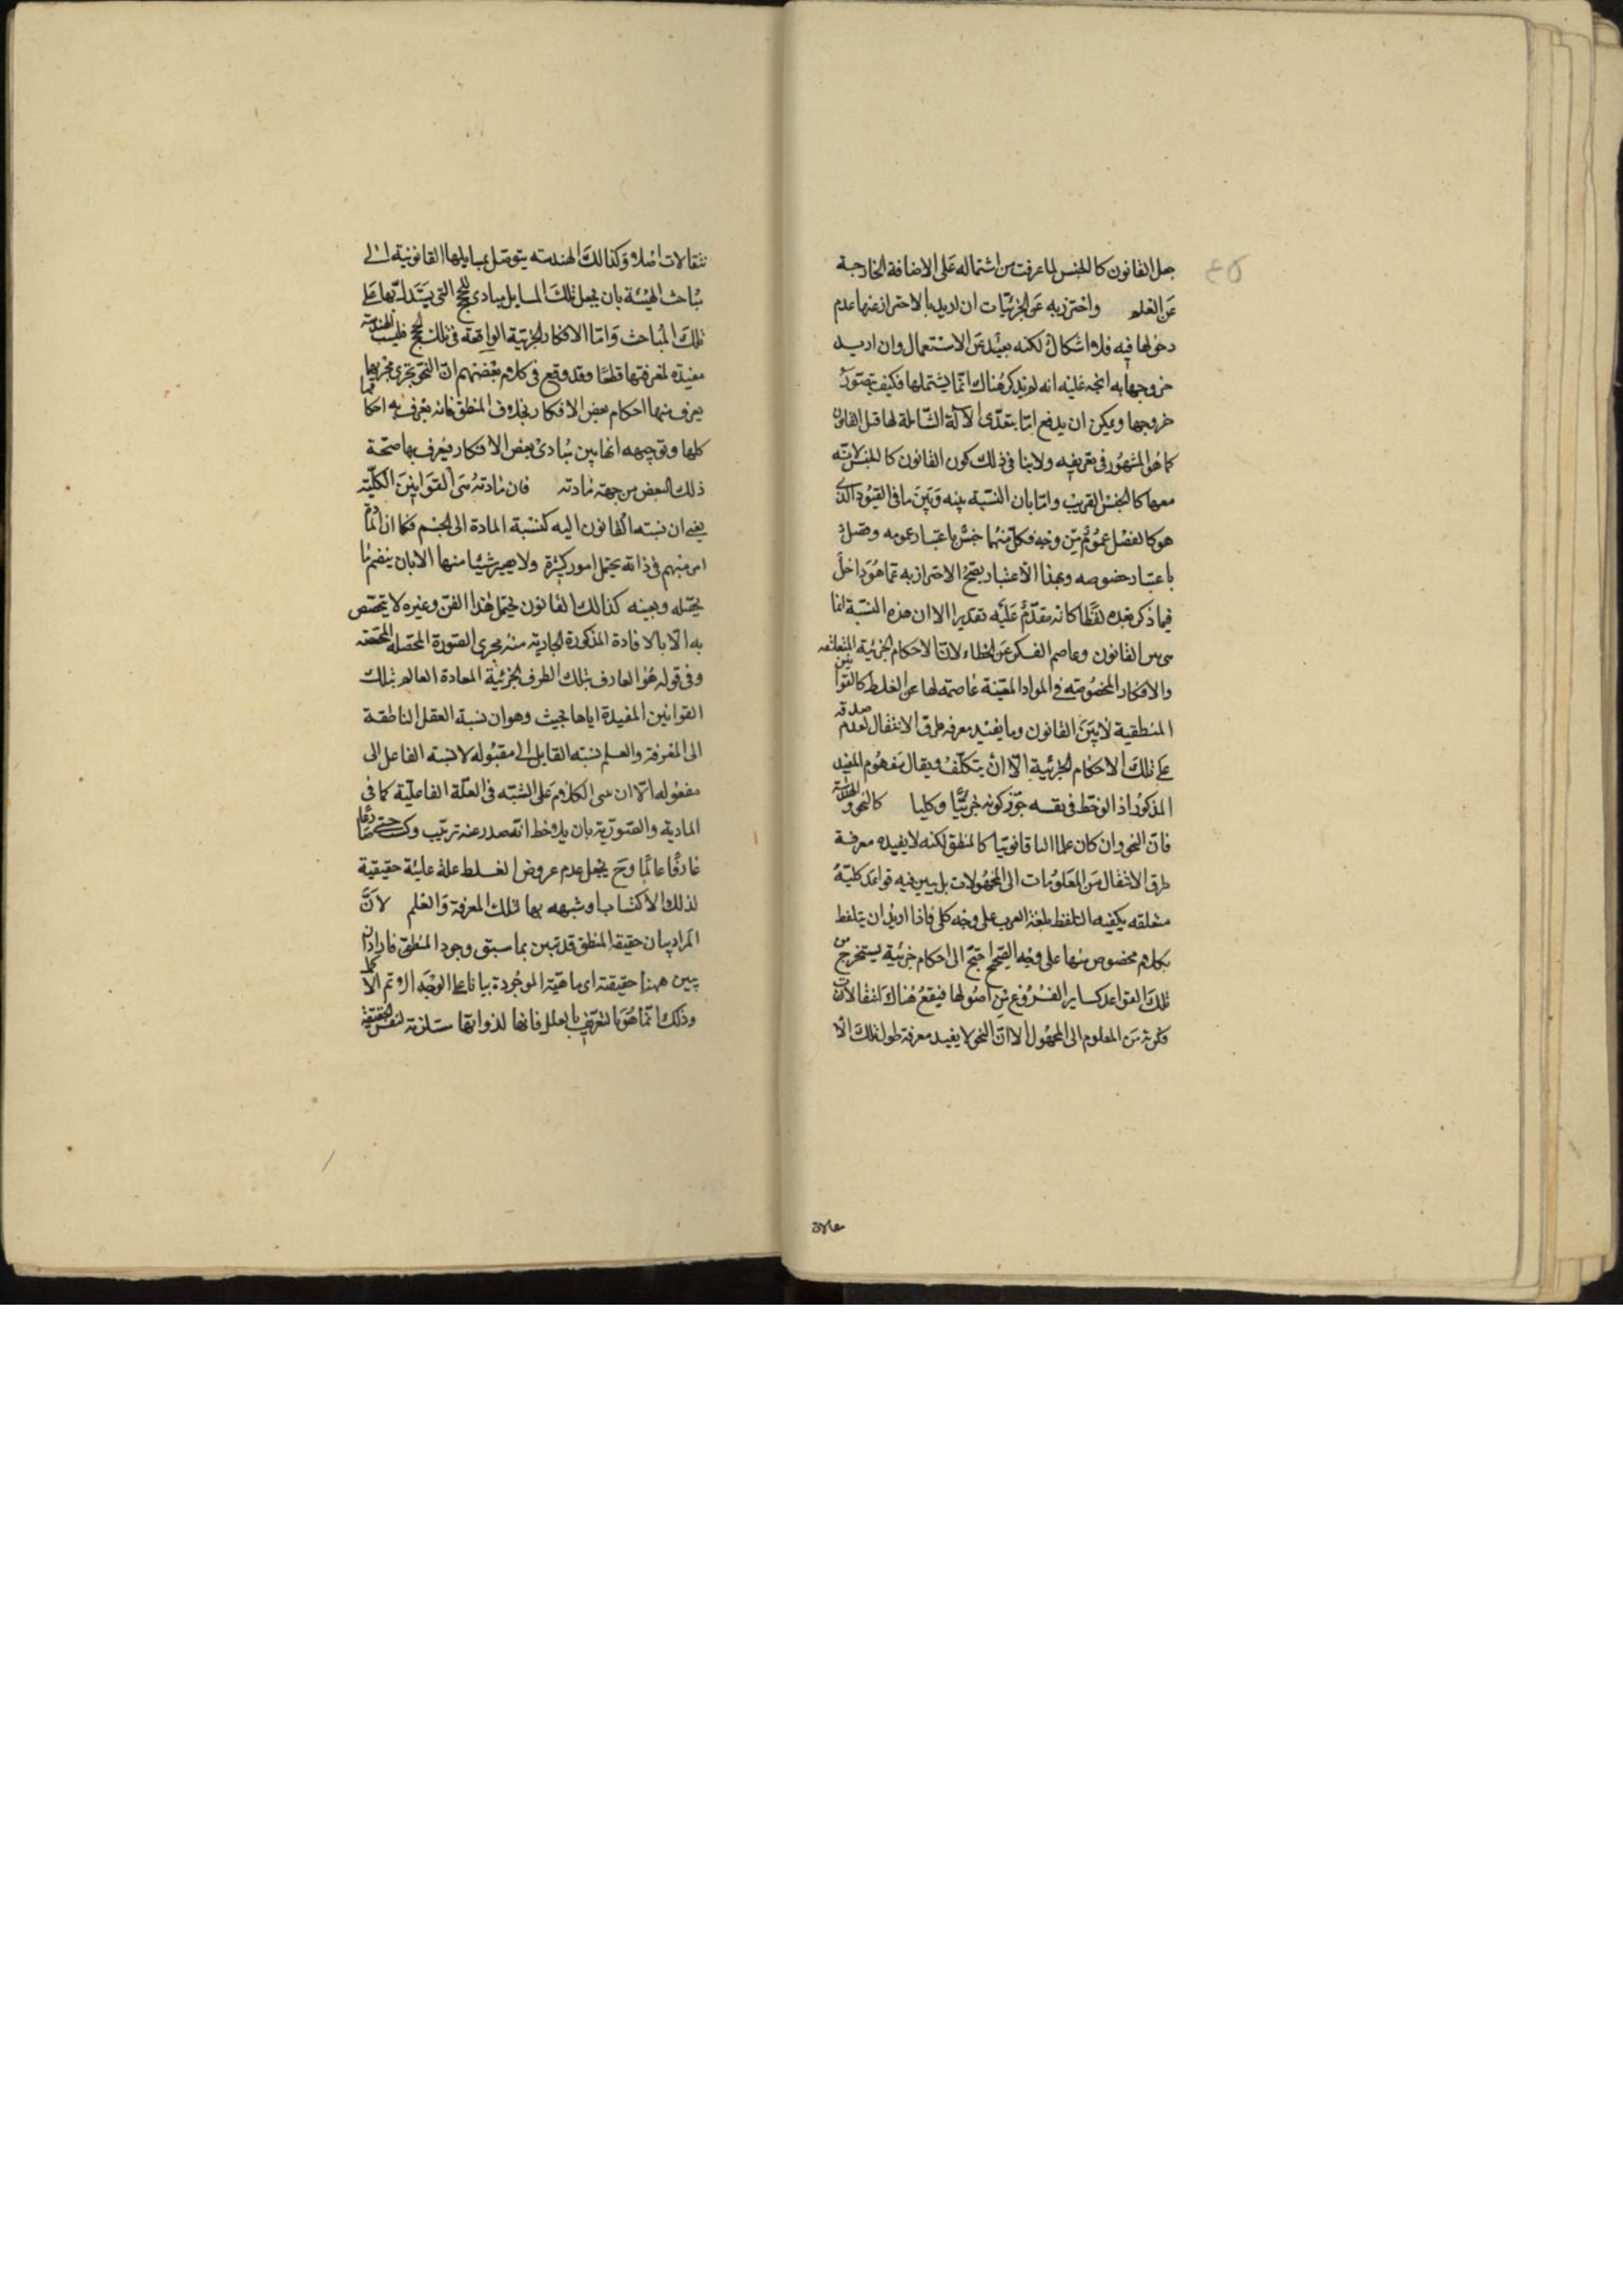 ٤٥
جعل القانون كالجنس لما عرفت من اشتماله على الاضافة الخارجة
عن العلم واحترز به عن الجزئيات ان اريد بالاحتراز عنها عدم
دخولها فيه فلا اشكال لكنه بعيد عن الاستعمال وان اريد
خروجها به اتجه عليه انه لم يذكر هناك ما يشتملها فكيف يتصور
خروجها ويمكن ان يدفع اما بتعدى الآلة الشاملة لها قبل القانون
كما هو المشهور في تعريفه ولا ينافي ذلك كون القانون كالجنس لانه
معها كالجنس القريب واما بان النسبة بينه وبين ما في القيود الذي
هو كالفصل عموم من وجه فكل منهما جنس باعتبار عمومه وفصل
باعتبار خصوصه وبهذا الاعتبار يصح الاحتراز به عما هو داخل
فيما ذكر بعده لفظا كانه مقدم عليه تقديرا الا ان هذه النسبة انما
هى بين القانون وعاصم الفكر عن الخطاء لان الاحكام الجزئية المتعلقة
والافكار المخصوصة في المواد المعينة عاصمة لها عن الغلط كالقوانين
المنطقية لا بين القانون وما يفيد معرفة طرق الانتقال لعدم صدقه
على تلك الاحكام الجزئية الا ان يتكلف ويقال مفهوم المفيد
المذكور اذا لوحظ في نفسه جوز كونه جزئيا وكليا كالنحو والهندسة
فان النحو وان كان علما آليا قانونيا كالمنطق لكنه لا يفيد معرفة
طرق الانتقال من المعلومات الى المجهولات بل يبين فيه قواعد كلية
متعلقة بكيفية التلفظ بلغة العرب على وجه كلى فاذا اريد ان يتلفظ
بكلام مخصوص منها على وجه الصحيح احتيج الى احكام جزئية يستخرج من
تلك القواعد كساير الفروع من اصولها فيقع هناك انتقالات
فكرية من المعلوم الى المجهول الا ان النحو لا يفيد معرفة طرق تلك الا
نتقالات اصلا وكذلك الهندسة يتوصل بمسايلها القانونية الى
مباحث الهيئة بان يجعل تلك المسايل مبادى للحجج التي يستدل بها على
تلك المباحث واما الافكار الجزئية الواقعة في تلك الحجج فليست الهندسة
مفيدة لمعرفتها قطعا وقد وقع في كلام بعضهم ان النحو يجرى مجريها
يعرف منها احكام بعض الافكار بخلاف المنطق فانه يعرف به احكامها
كلها وتوجيهه انها يبين مبادى بعض الافكار فيعرف بها صحة
ذلك البعض من جهة مادته فان مادته هى القوانين الكلية
يعنى ان نسبة القانون اليه كنسبة المادة الى الجسم فكما ان المادة
امر مبهم في ذاته يحتمل امور كثيرة ولا يصير شيئا منها الا بان ينضم ما
يحصله ويعينه كذلك القانون يحتمل هذا الفن وغيره لا يتخصص
به الا بالافادة المذكورة الجارية منه مجرى الصورة المحصلة المحققة
وفي قوله هو العارف بتلك الطرق الجزئية المعادة العالم بتلك
القوانين المفيدة اياها بحيث وهو ان نسبة العقل الناطقة
الى المعرفة والعلم نسبة القابل الى مقبوله لا نسبة الفاعل الى
مفعوله الا ان بنى الكلام على الشبه في العلة الفاعلية كما في
المادية والصورية بان يلاحظ انه صدر عنه ترتيب
عارفا عالما وح يجعل عدم عروض الغلط علة غائية حقيقية
لذلك الاكتساب وشبهه بها لتلك المعرفة والعلم لان
المراد بيان حقيقة المنطق قد تبين بما سبق وجود المنطق فاراد ان
يبين ههنا حقيقته اى ماهيته الموجودة بيانا على الوجه الاتم الاكمل
وذلك انما هو بالتعريف بالعلل فانها لذواتها مستلزمة لنفس الحقيقة